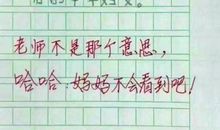 老师不是那个意思，
哈哈，妈妈不会看到吧！